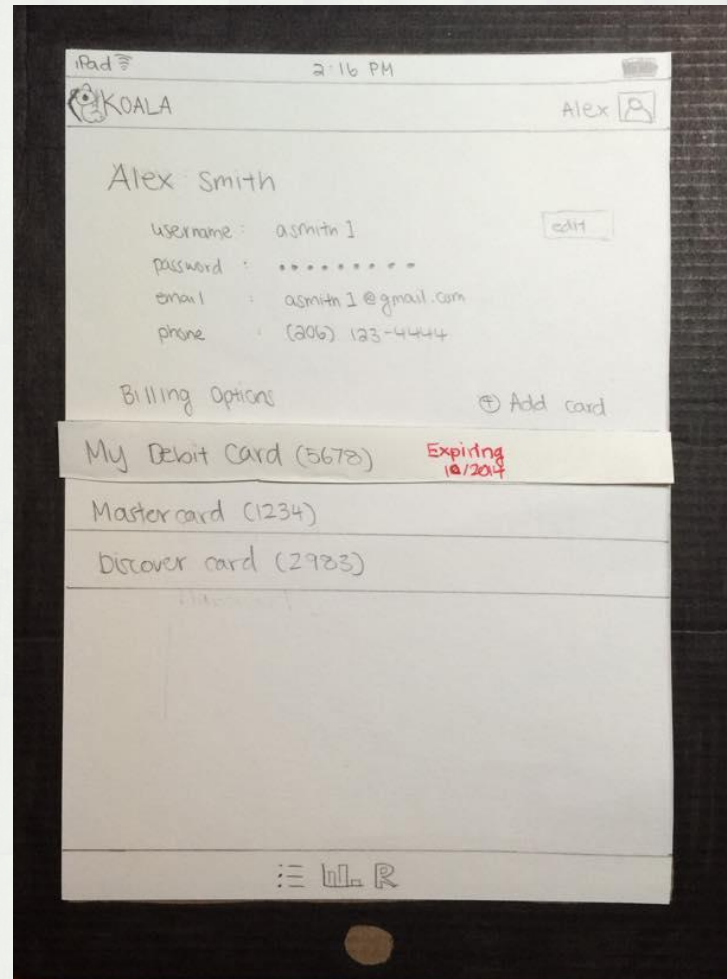 iPad
2:16 PM
KOALA
Alex
Alex Smith
username : asmith1
edit
password : • • • • • • • • •
email : asmith1@gmail.com
phone : (206) 123-4444
Billing Options
+ Add card
My Debit Card (5678)
Expiring
10/2014
Mastercard (1234)
Discover card (2983)
R